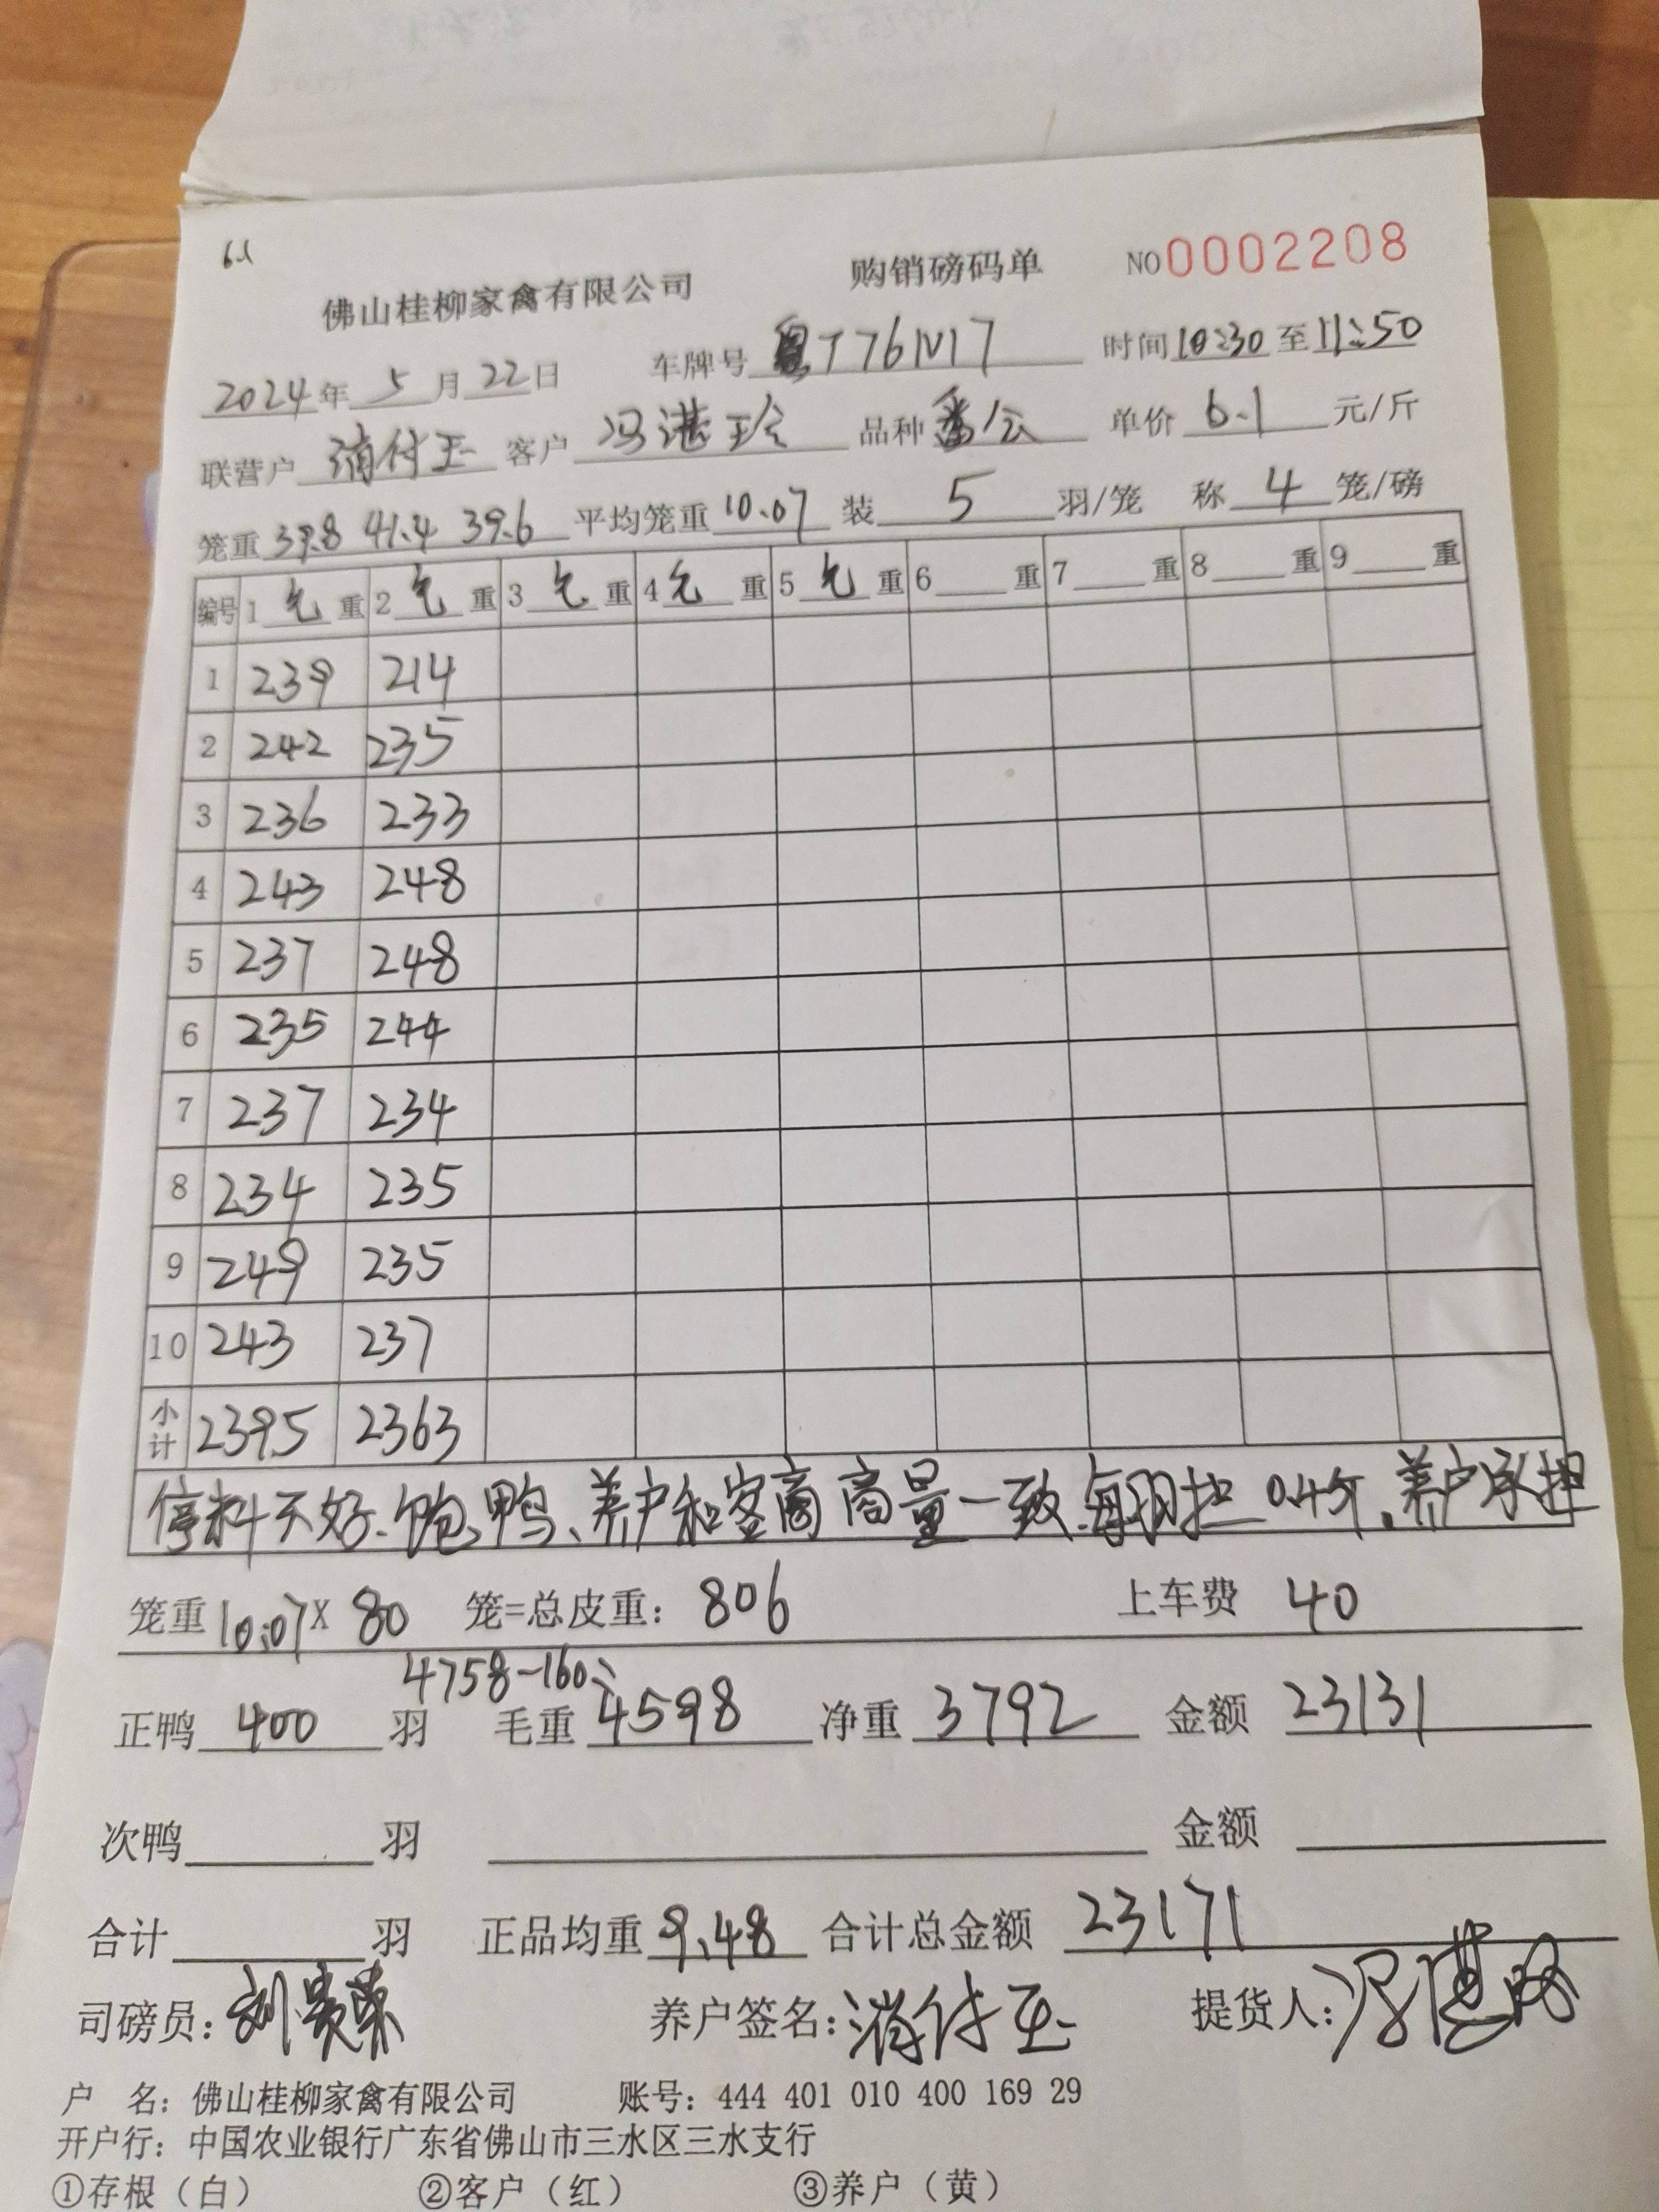 6.1
佛山桂柳家禽有限公司 购销磅码单 NO0002208
2024年 5 月 22日 车牌号 粤T761V17 时间 10:30 至 11:50
联营户 客户 冯湛玲 品种 番公 单价 6.1 元/斤
笼重 39.8 41.4 39.6 平均笼重 10.07 装 5 羽/笼 称 4 笼/磅
编号 1 毛 重 2 毛 重 3 毛 重 4 毛 重 5 毛 重 6 重 7 重 8 重 9 重
1 239 214
2 242 235
3 236 233
4 243 248
5 237 248
6 235 244
7 237 234
8 234 235
9 249 235
10 243 237
小计 2395 2363
停料不好、饱鸭、养户和客商商量一致每羽扣0.4斤。养户承担
笼重 10.07 X 80 笼=总皮重: 806 上车费 40
4758-160=
正鸭 400 羽 毛重 4598 净重 3792 金额 23131
次鸭 羽 金额
合计 羽 正品均重 9.48 合计总金额 23171
司磅员: 刘贵荣 养户签名: 提货人:
户 名: 佛山桂柳家禽有限公司 账号: 444 401 010 400 169 29
开户行: 中国农业银行广东省佛山市三水区三水支行
①存根（白） ②客户（红） ③养户（黄）